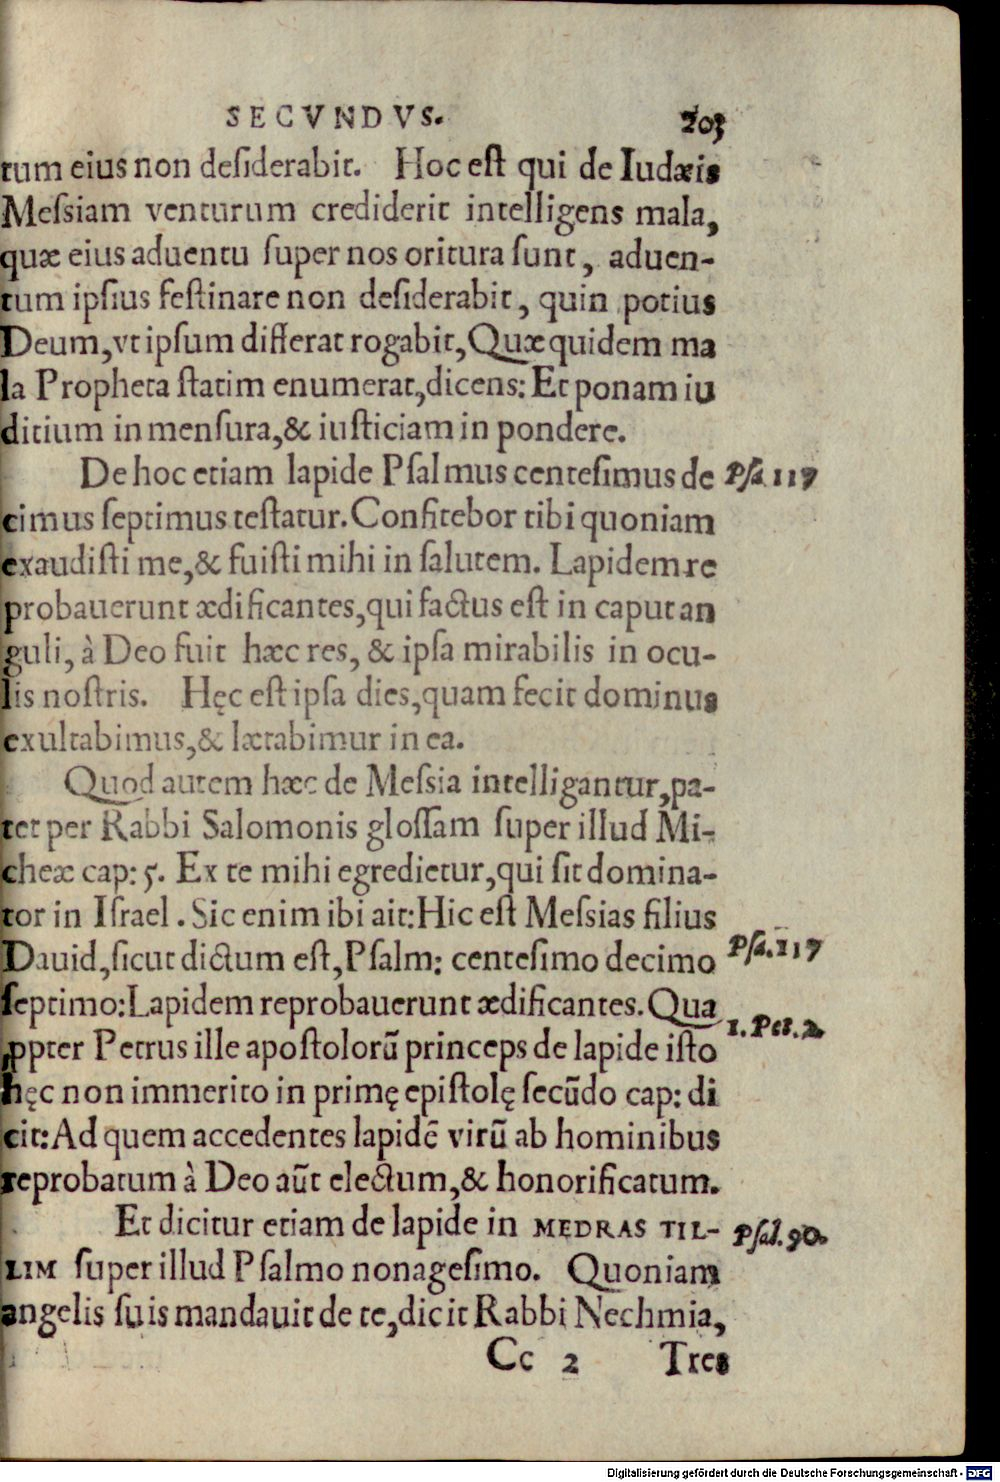 SECVNDVS. 203
tum eius non deſiderabit. Hoc eſt qui de Iudæis
Meſsiam venturum crediderit intelligens mala,
quæ eius aduentu ſuper nos oritura ſunt, aduen-
tum ipſius feſtinare non deſiderabit, quin potius
Deum, vt ipſum differat rogabit, Quæ quidem ma
la Propheta ſtatim enumerat, dicens: Et ponam iu
ditium in menſura, & iuſticiam in pondere.
De hoc etiam lapide Pſalmus centeſimus de Pſa. 117
cimus ſeptimus teſtatur. Confitebor tibi quoniam
exaudiſti me, & fuiſti mihi in ſalutem. Lapidem re
probauerunt ædificantes, qui factus eſt in caput an
guli, à Deo fuit hæc res, & ipſa mirabilis in ocu-
lis noſtris. Hęc eſt ipſa dies, quam fecit dominus
exultabimus, & lætabimur in ea.
Quod autem hæc de Meſsia intelligantur, pa-
tet per Rabbi Salomonis gloſſam ſuper illud Mi-
cheæ cap: 5. Ex te mihi egredietur, qui ſit domina-
tor in Iſrael. Sic enim ibi ait: Hic eſt Meſsias filius
Dauid, ſicut dictum eſt, Pſalm: centeſimo decimo Pſa. 117
ſeptimo: Lapidem reprobauerunt ædificantes. Qua
ꝓpter Petrus ille apoſtolorũ princeps de lapide iſto 1. Pet. 2
hęc non immerito in primę epiſtolę ſecũdo cap: di
cit: Ad quem accedentes lapidẽ virũ ab hominibus
reprobatum à Deo aũt electum, & honorificatum.
Et dicitur etiam de lapide in MEDRAS TIL- Pſal. 90.
LIM ſuper illud Pſalmo nonageſimo. Quoniam
angelis ſuis mandauit de te, dicit Rabbi Nechmia,
Cc 2 Tres
Digitalisierung gefördert durch die Deutsche Forschungsgemeinschaft - DFG